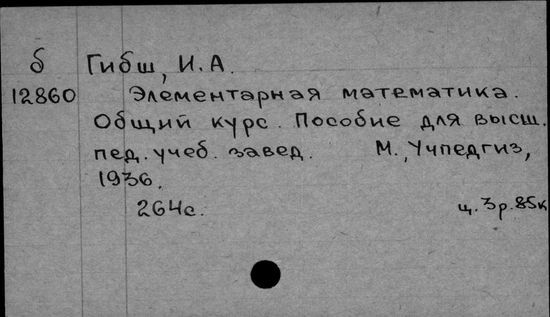 б Гибш, И.А.
12860 Элементарная математика.
Общий курс. Пособие для высш.
пед. учеб. завед. М., Учпедгиз,
1936.
264с. ц. 3р. 85к